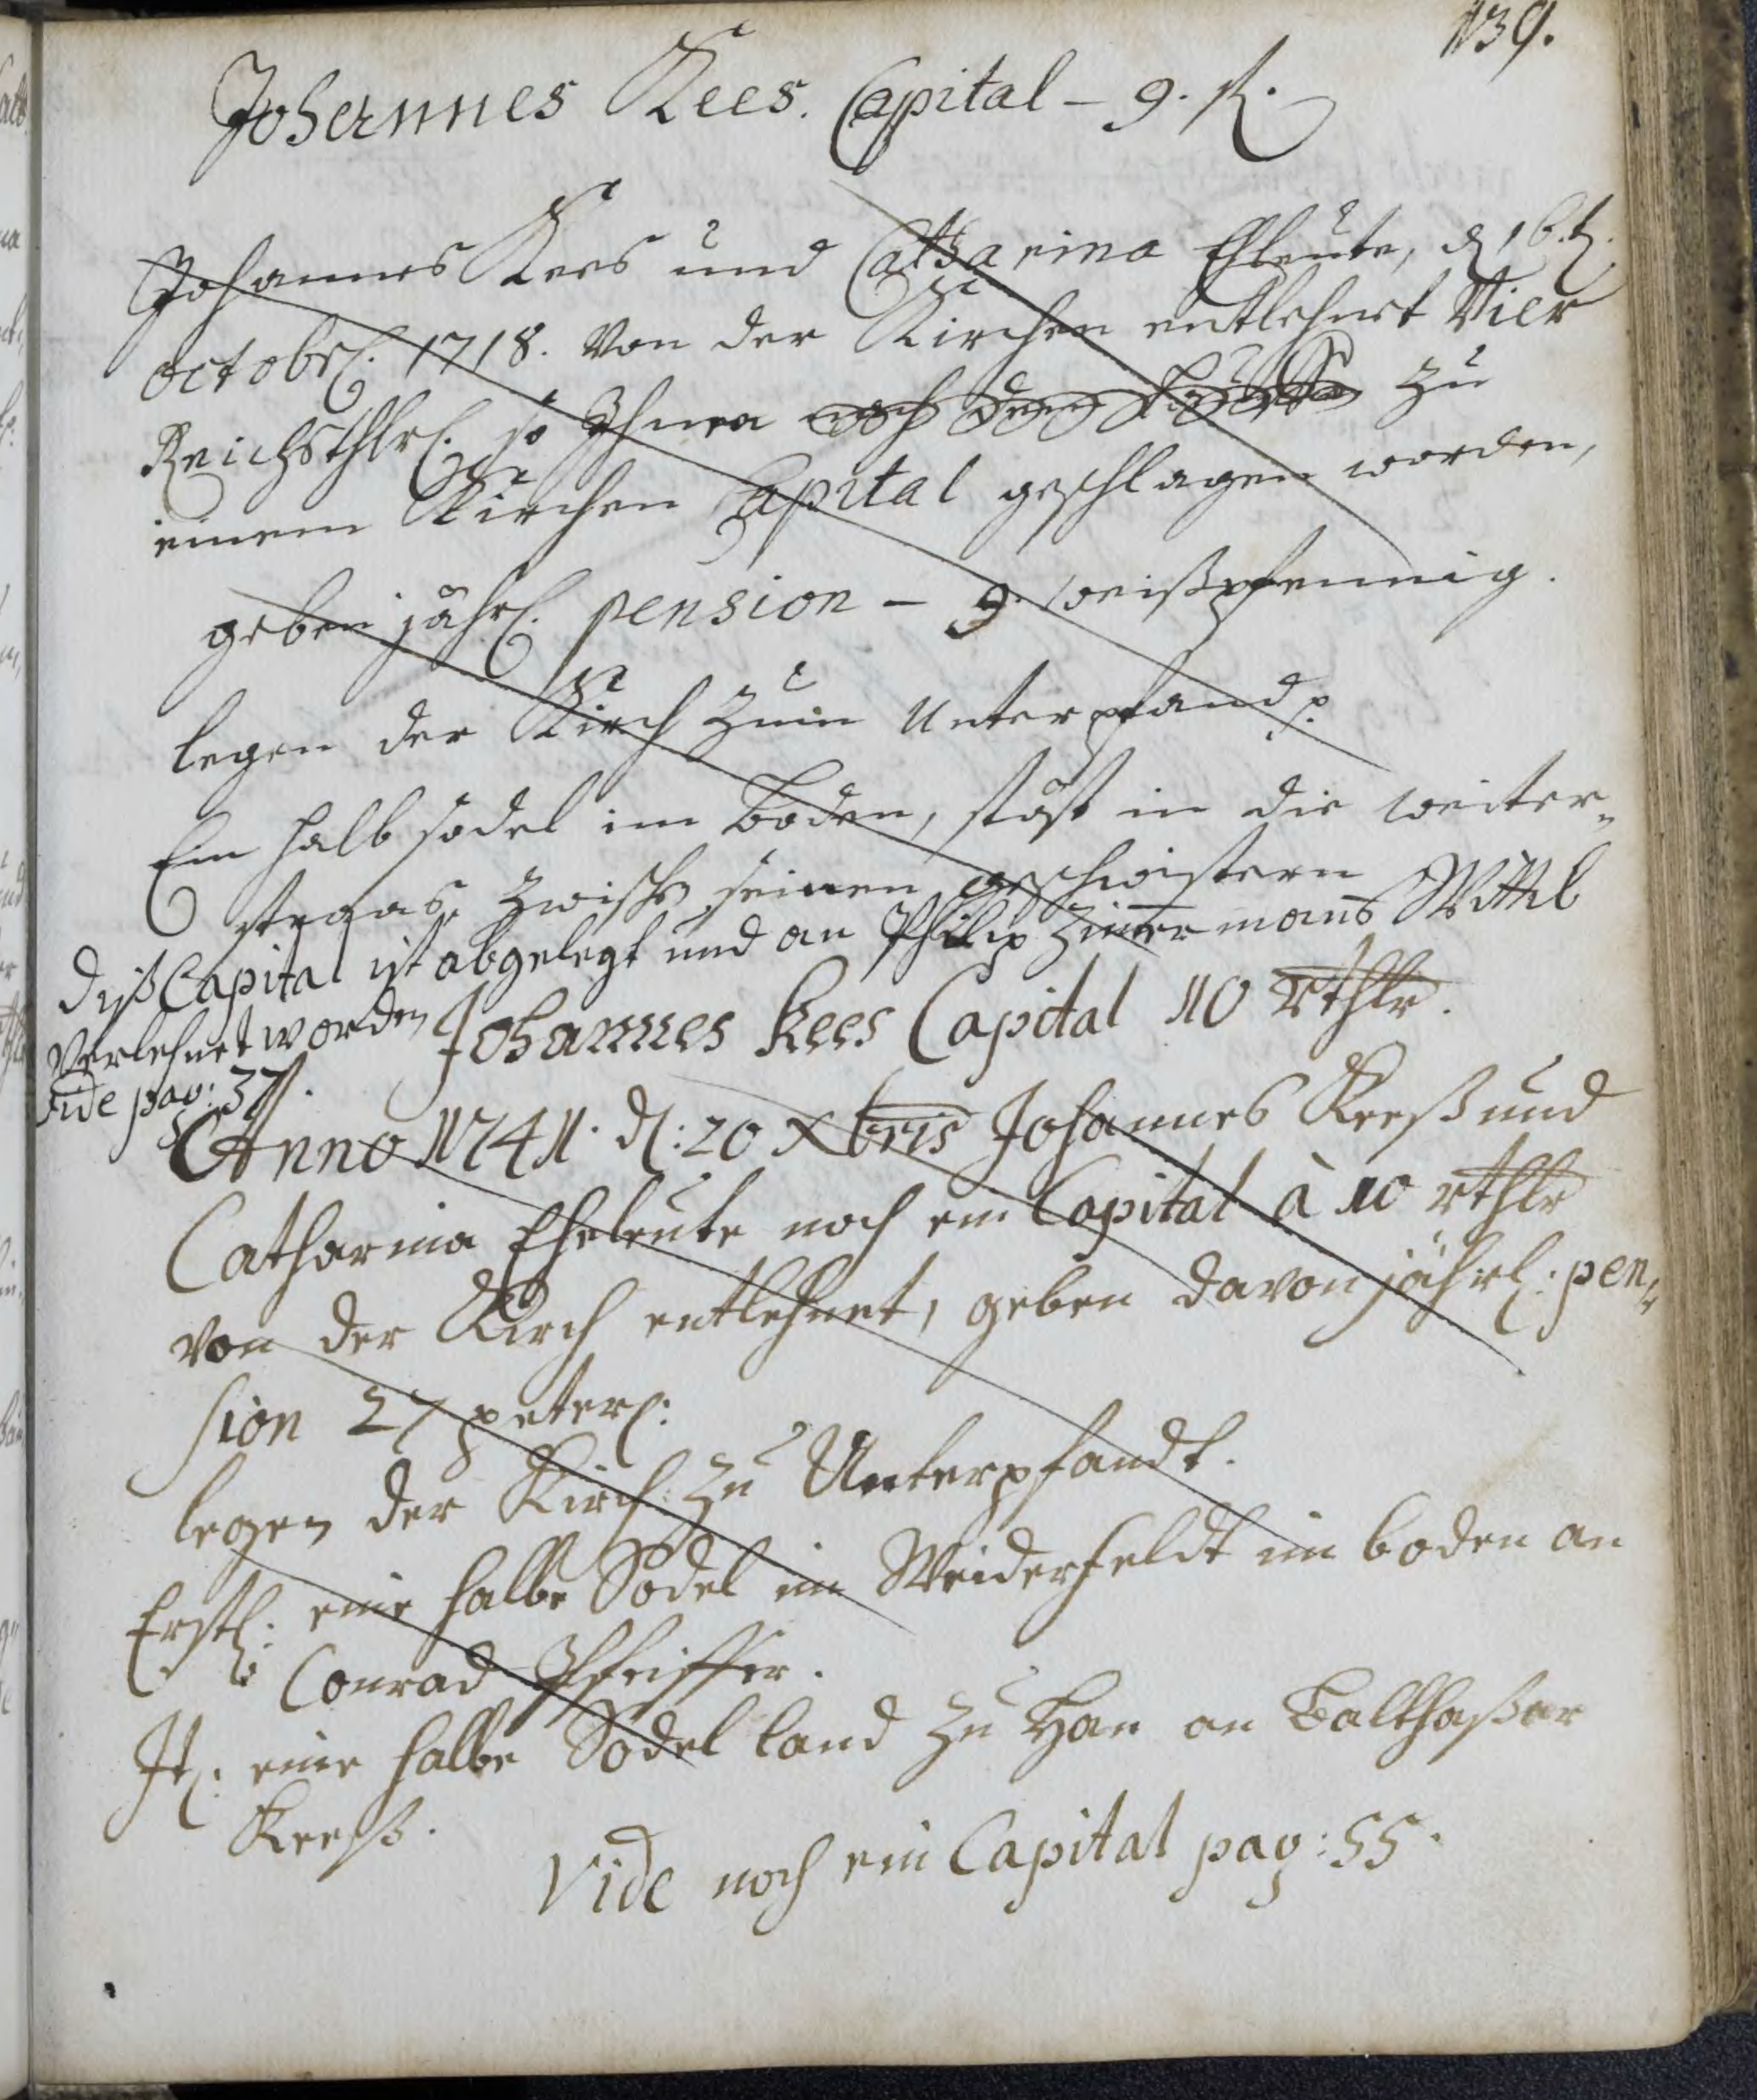 139.
Johannes Kees. Capital – 9. fl.
Johannes Kees und Catharina Ehleute, d 16.t.
octobrl. 1718. von der Kirchen entlehnt Vier
Reichsthlrl. so Ihnen zu
einem Kirchen Capital geschlagen worden,
geben jährl. pension – 9. weißpfennig.
legen der Kirch zum Unterpfand
Ein halb sodel im boden, stost in die weiter-
straas, zwischn seinen geschwistern
diß Capital ist abgelegt und an Philip Zimermans Wittib
verlehnet worden
vide pag: 37.
Johannes Kees Capital 10 rthlr.
Anno 1741. d: 20 Xbris Johannes Keeß und
Catharina Eheleute noch ein Capital à 10 rthlr
von der Kirch entlehnet, geben davon jährl: pen-
sion 27 peterl:
legen der Kirch: zu Unterpfandt.
Erstl: eine halbe Sodel im Weiderfeldt im boden an
Conrad Pfeiffer.
It: eine halbe Sodel land zu Han an Balthaßar
Keeß.
Vide noch ein Capital pag: 55.